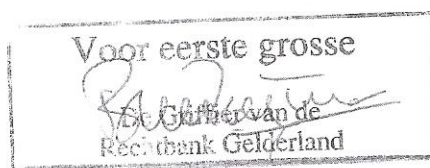 Voor eerste grosse
De Griffier van de
Rechtbank Gelderland